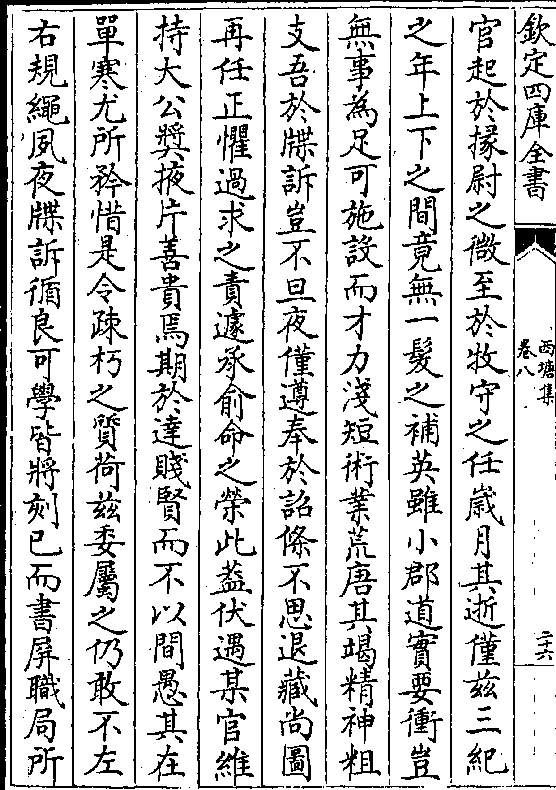 欽定四庫全書
西塘集
卷八
二十六
官起於掾尉之微至於牧守之任嵗月其逝僅兹三紀
之年上下之間竟無一髮之補英雖小郡道實要衝豈
無事為足可施設而才力淺短術業荒唐其竭精神粗
支吾於牒訴豈不旦夜僅遵奉於詔條不思退藏尚圖
再任正懼過求之責遽承俞命之榮此葢伏遇某官維
持大公奬掖片善貴焉期於達賤賢而不以間愚其在
單寒尤所矜惜是令疎朽之質荷兹委屬之仍敢不左
右規繩夙夜牒訴循良可學皆將刻已而書屏職局所